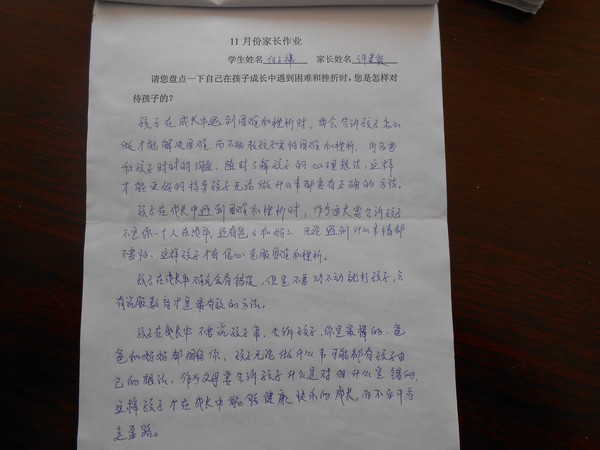 11月份家长作业
学生姓名 家长姓名
请您盘点一下自己在孩子成长中遇到困难和挫折时,您是怎样对
待孩子的?
孩子在成长中遇到困难和挫折时,我会告诉孩子怎么
做才能解决困难而不能教孩子害怕困难和挫折,
和孩子时时的沟通,随时了解孩子的心理想法,这样
才能更好的指导孩子无论做什么事都要有正确的方法。
孩子在成长中遇到困难和挫折时,作为家长要告诉孩子
不是你一个人在战斗,还有爸爸和妈妈,无论遇到什么事情都
不害怕、这样孩子才有信心克服困难和挫折。
孩子在成长中难免会有错误,但是不要动不动就打孩子,只
有说服教育才是最有效的方法。
孩子在成长中不要说孩子笨,告诉孩子,你是最棒的、爸
爸和妈妈都相信你,孩子无论做什么事可能都有孩子自
己的想法,作为父母要告诉孩子什么是对的什么是错的,
这样孩子才在成长中能够健康快乐的成长,而不至于
走歪路。